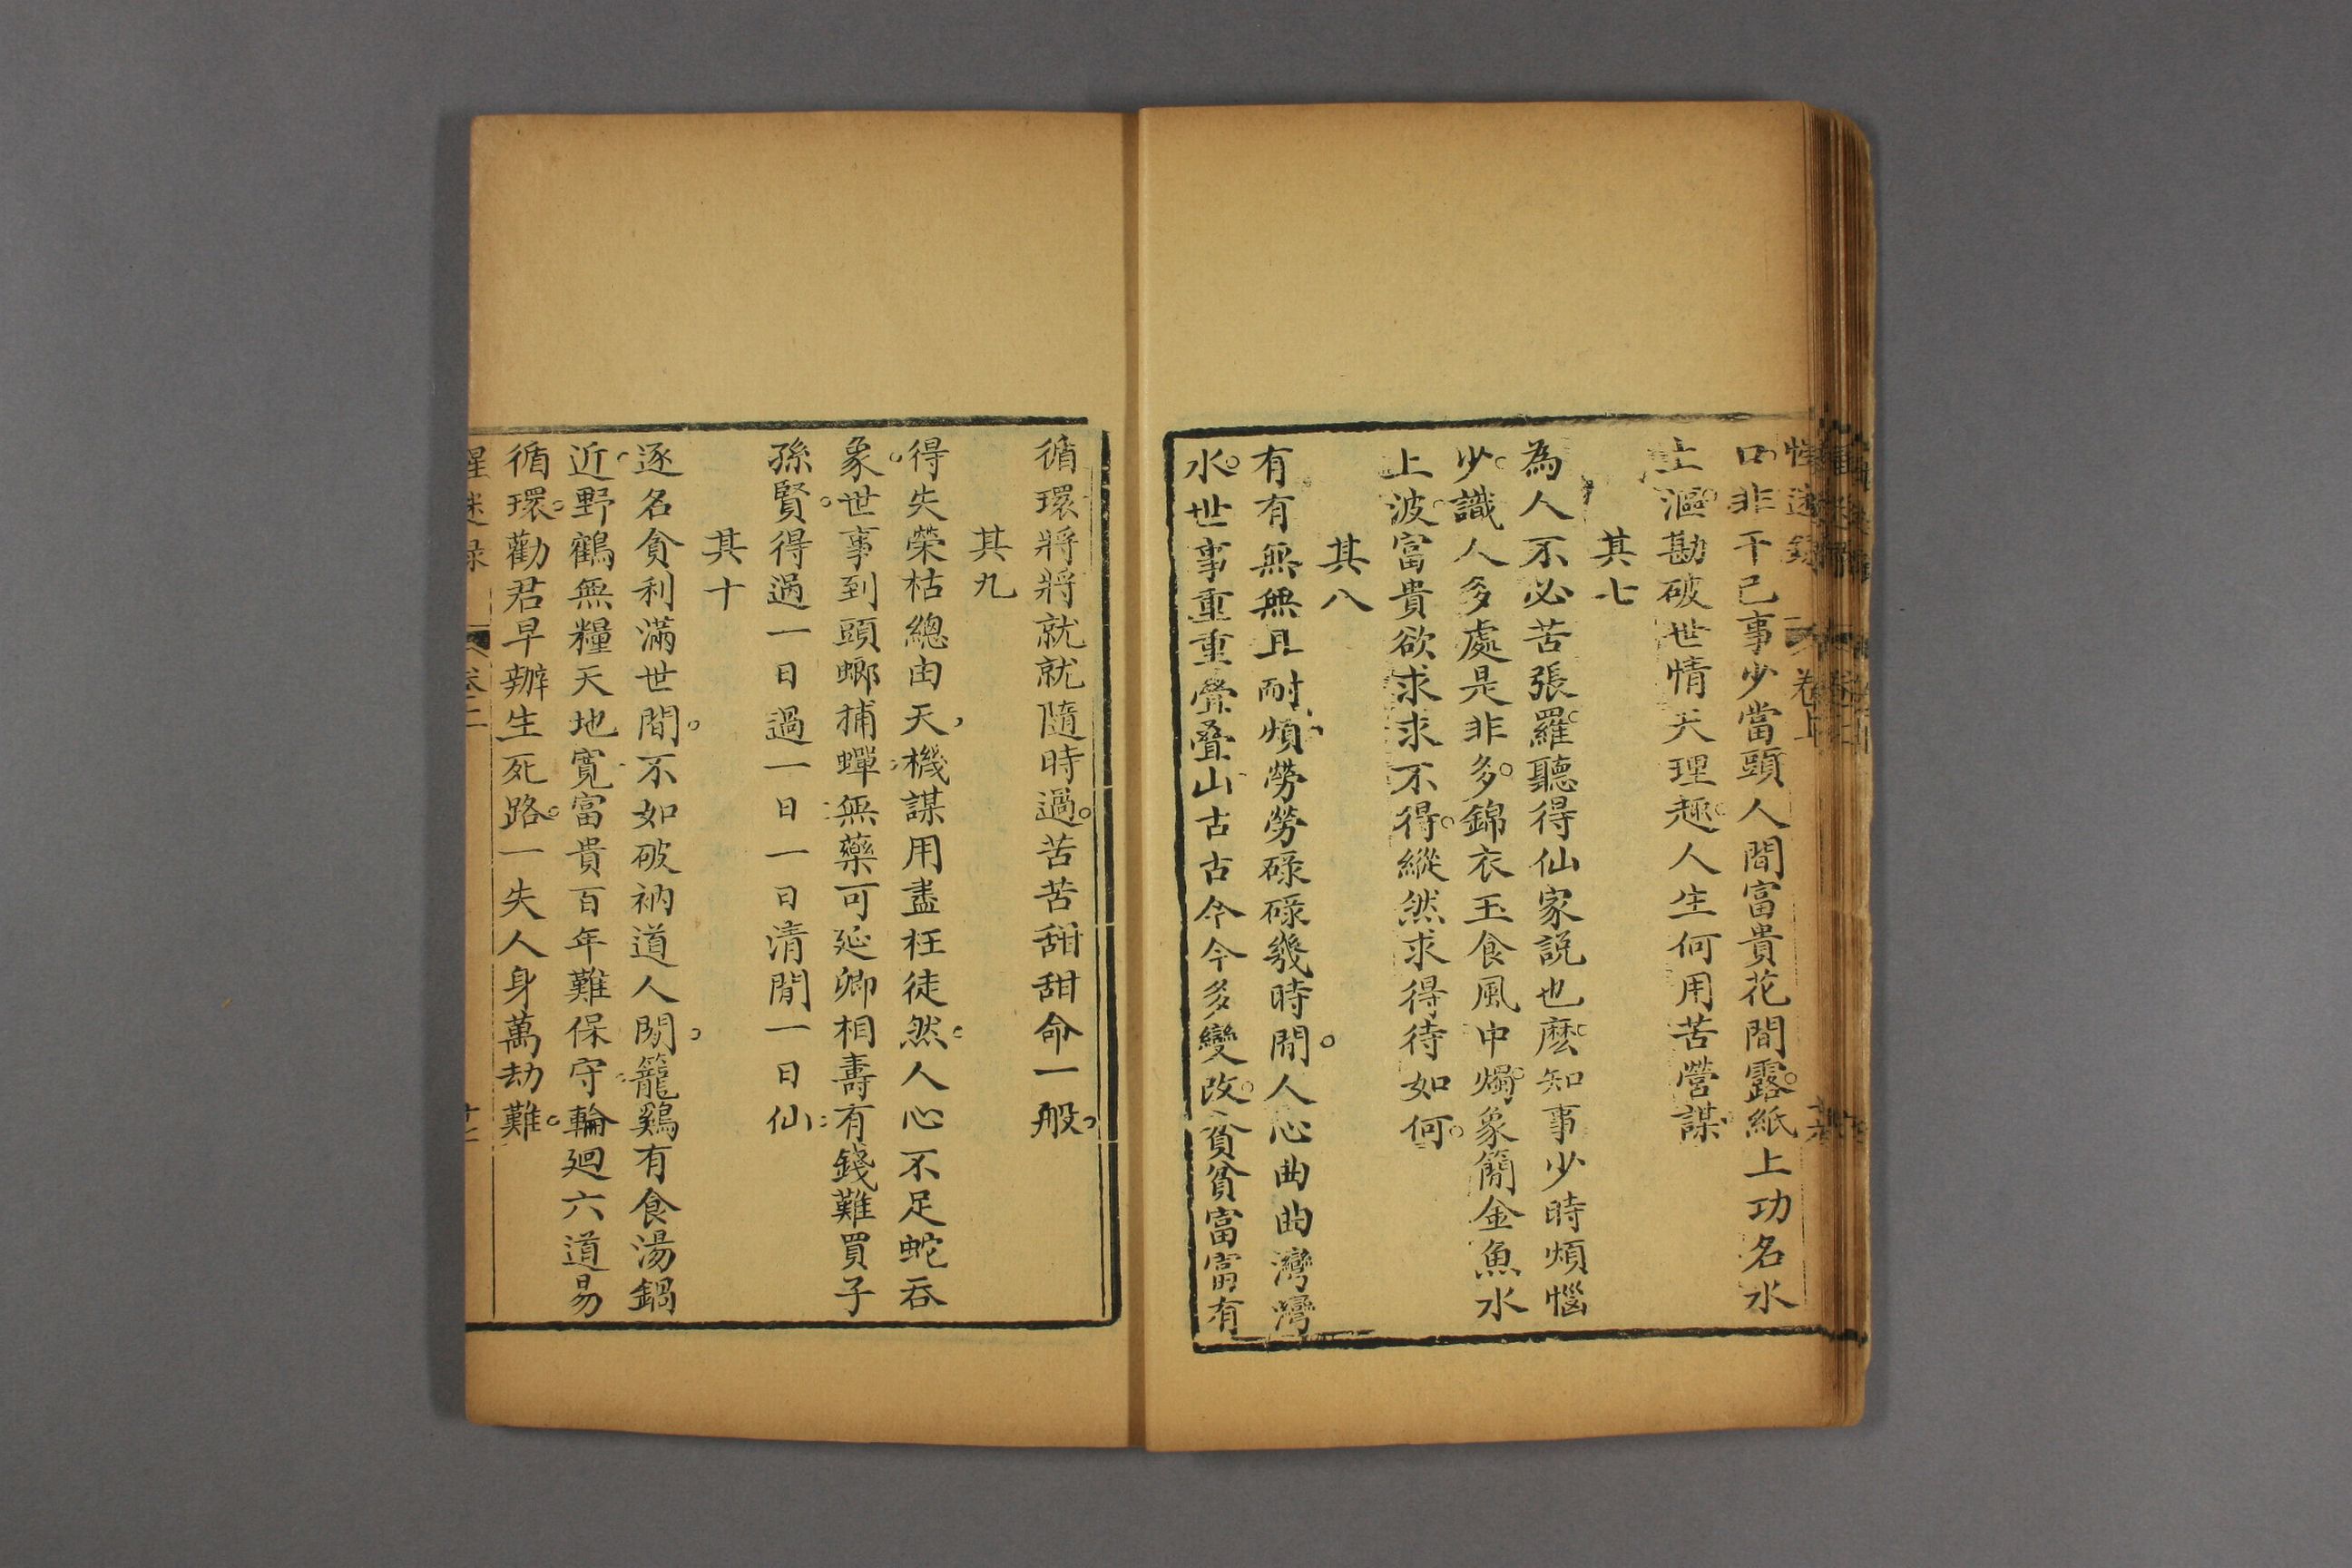 口非干己事少當頭人間富貴花間露紙上功名水
上漚勘破世情天理趣人生何用苦營謀
其七
為人不必苦張羅聽得仙家説也麽知事少時煩惱
少識人多處是非多錦衣玉食風中燭象簡金魚水
上波富貴欲求求不得縱然求得待如何
其八
有有無無且耐煩勞勞碌碌幾時間人心曲曲灣灣
水世事重重叠叠山古古今今多變改貧貧富富有
循環將將就就隨時過苦苦甜甜命一般
其九
得失榮枯總由天機謀用盡枉徒然人心不足蛇吞
象世事到頭螂捕蟬無藥可延卿相壽有錢難買子
孫賢得過一日過一日一日清閒一日仙
其十
逐名貪利滿世間不如破衲道人閑籠鷄有食湯鍋
近野鶴無糧天地寬富貴百年難保守輪廻六道易
循環勸君早辦生死路一失人身萬劫難
醒迷录 卷二